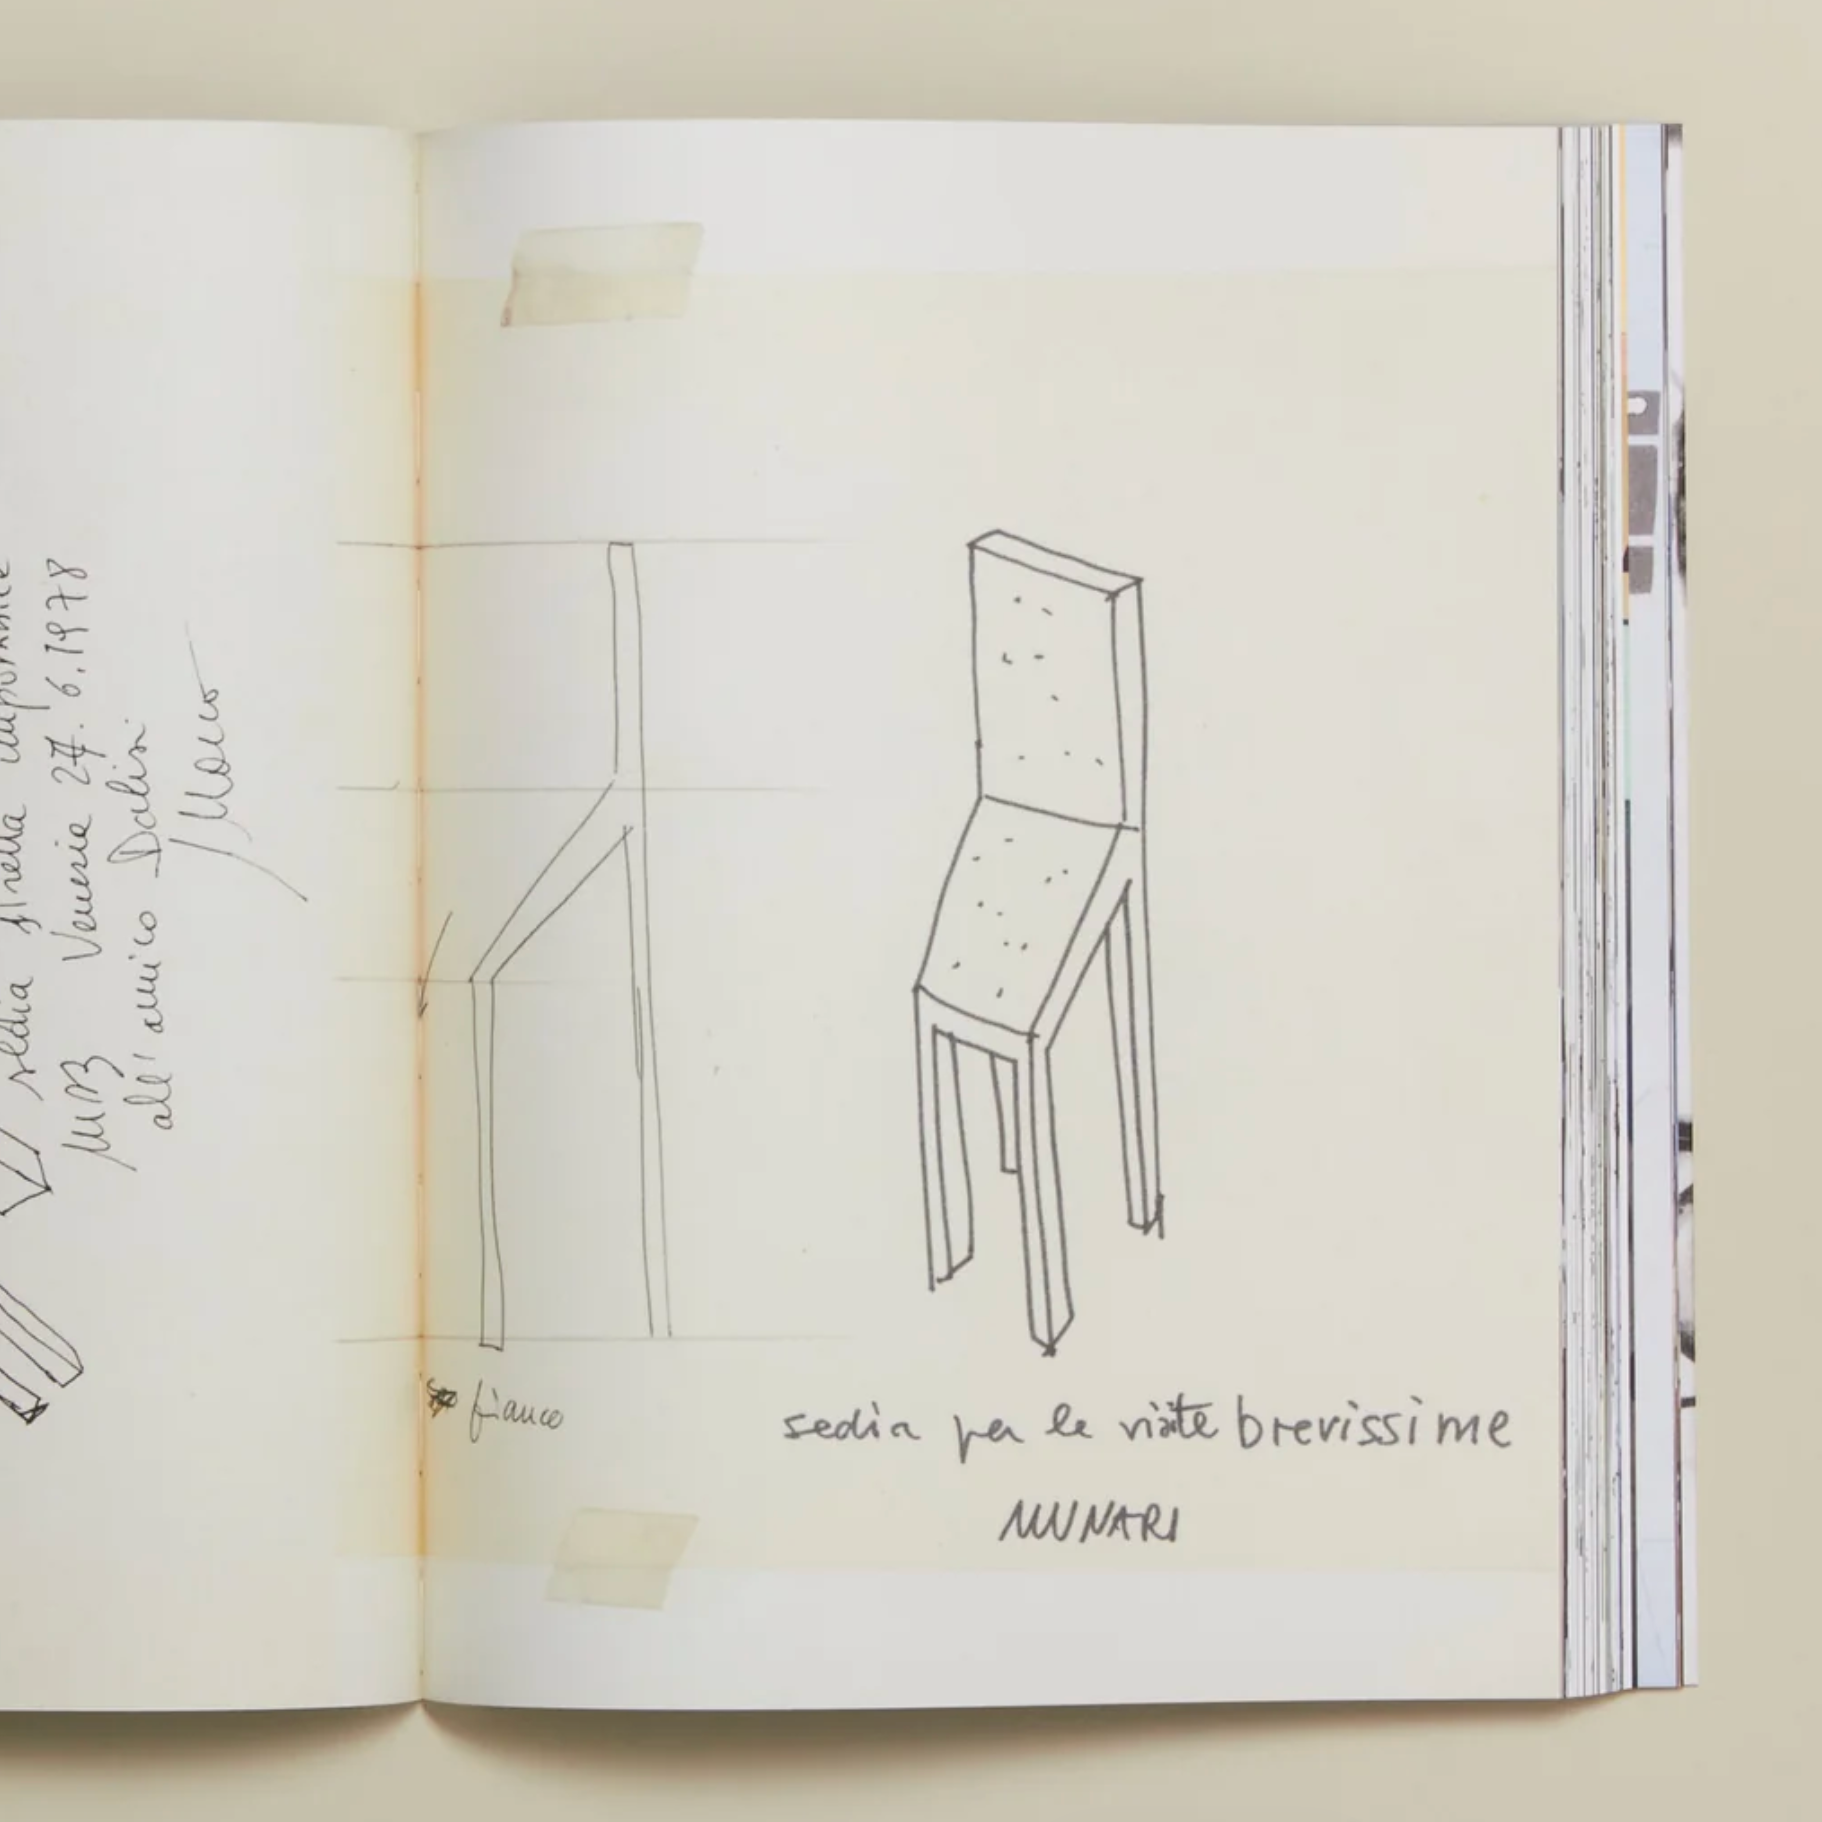 sedia stretta
Venezia 27.6.1978
all'amico Dalisi
fianco
sedia per le visite brevissime
MUNARI